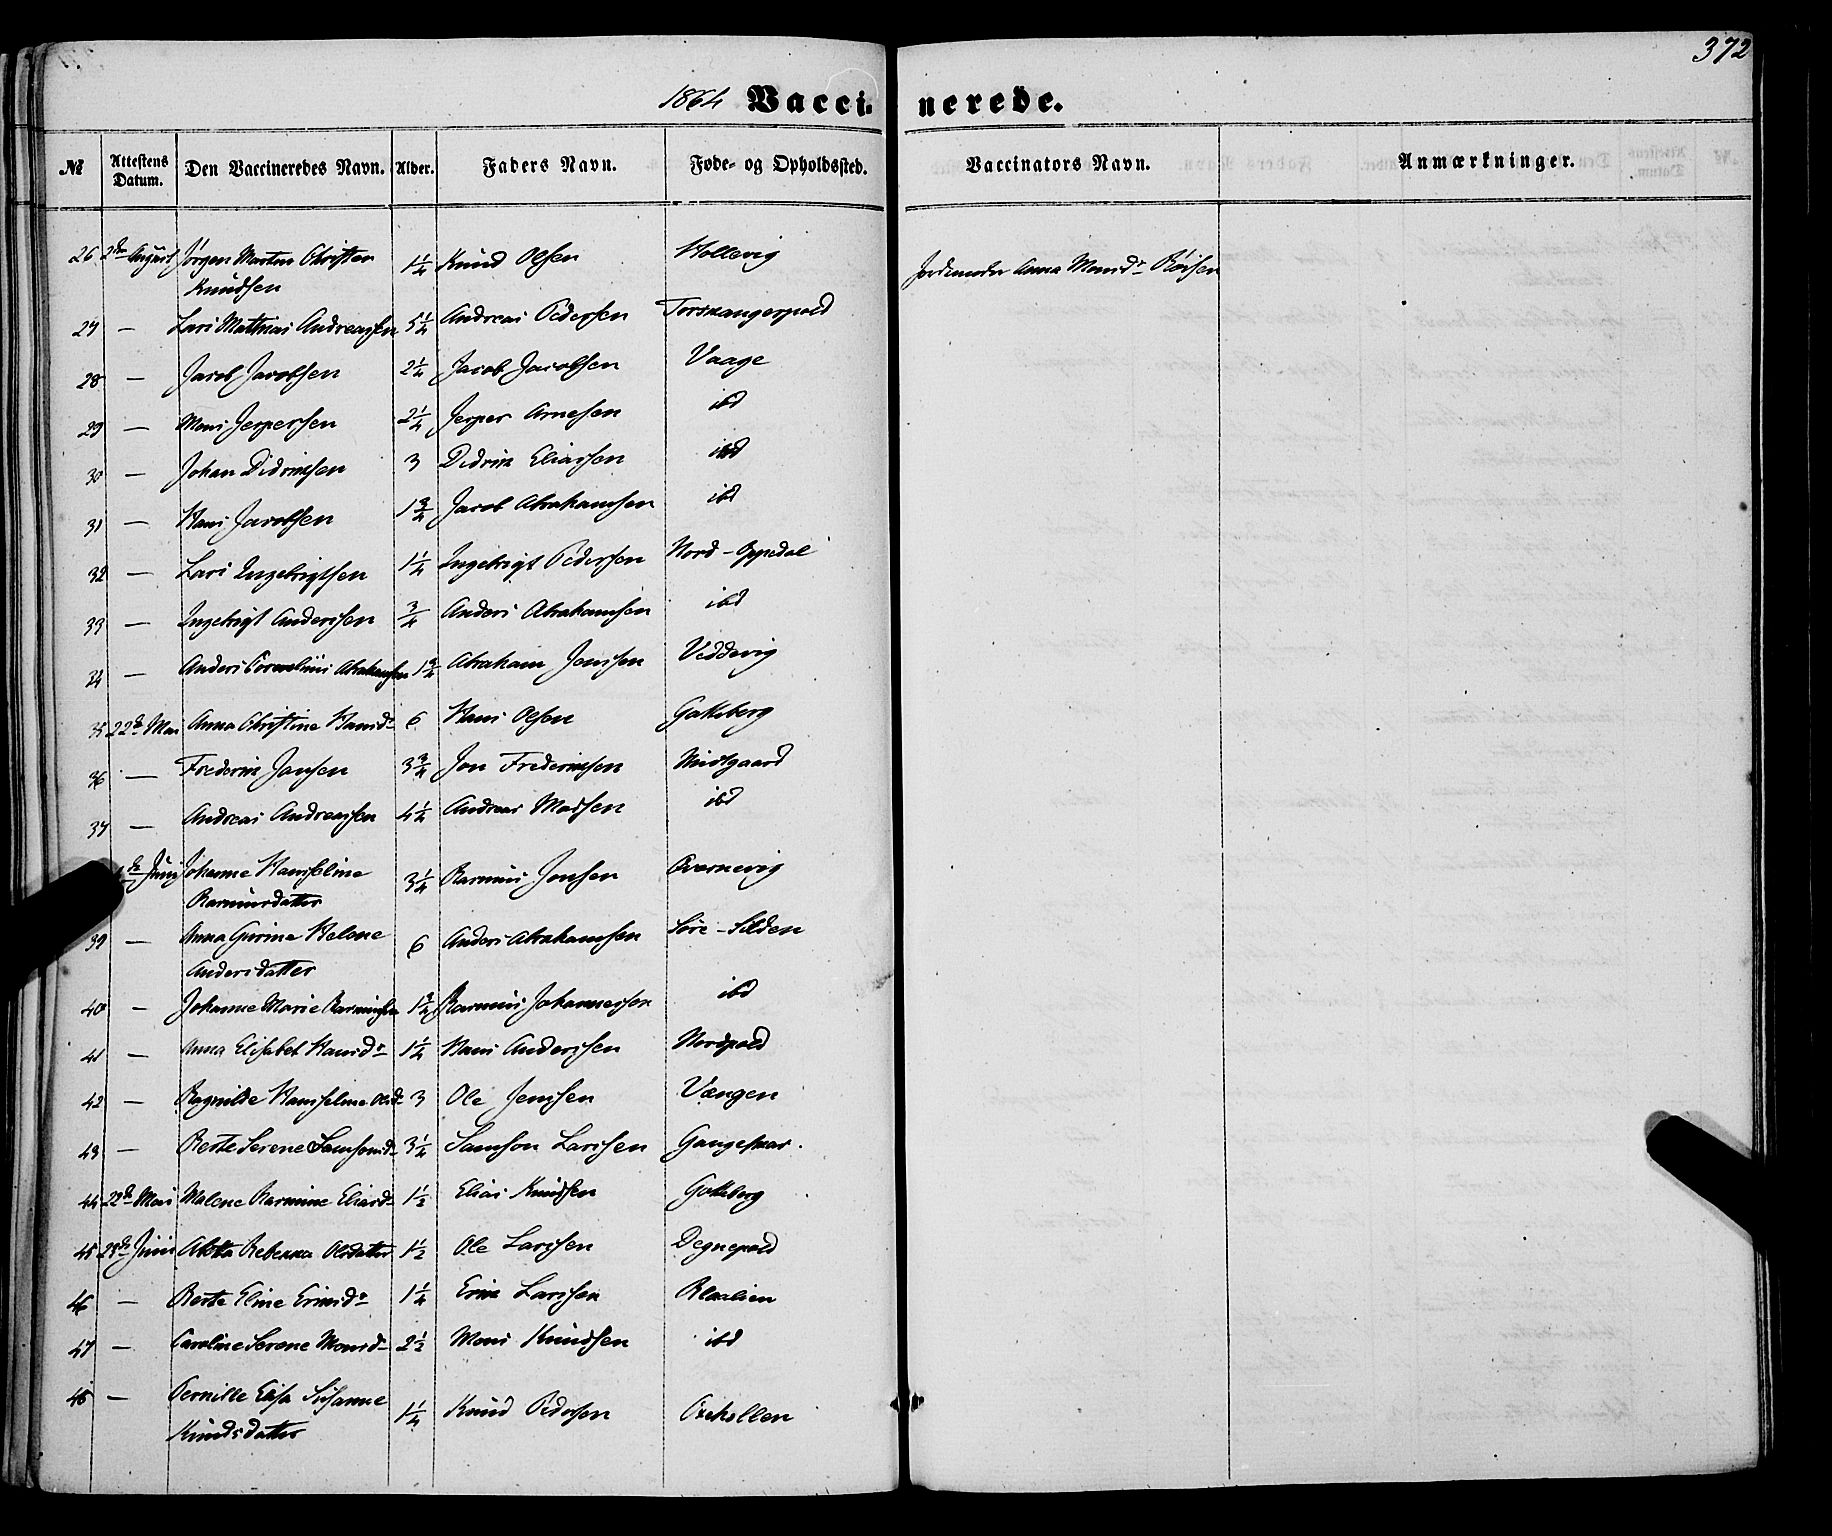 372
1864 Vaccinerede.
№ Attestens Datum. Den Vaccineredes Navn. Alder. Faders Navn. Føde- og Opholdssted. Vaccinators Navn. Anmærkninger.
26 2de August Jørgen Martin Christian 1 1/4 Knud Olsen Hollevig Jordemoder Anna Monsdr
Knudsen
27 — Lars Mathias Andreassen 5 1/4 Andreas Pedersen Torskangerpold
28 — Jacob Jacobsen 2 1/4 Jacob Jacobsen Vaage
29 — Mons Jespersen 2 1/4 Jesper Arnesen ibd
30 — Johan Didriksen 3 Didrik Eliassen ibd
31 — Hans Jacobsen 1 3/4 Jacob Abrahamsen ibd
32 — Lars Ingebrigtsen 1 1/4 Ingebrigt Pedersen Nord-Oppedal
33 — Ingebrigt Anderssen 3/4 Anders Abrahamsen ibd
34 — Anders Cornelius Abrahamsen 1 3/4 Abraham Jenssen Veddevig
35 22de Mai Anna Christine Hansdr 6 Hans Olsen Gotteberg
36 — Frederik Jonsen 3 3/4 Jon Frederiksen Midtgaard
37 — Andreas Andreassen 4 1/2 Andreas Madsen ibd
Juni Johanne Hanseline 3 1/4 Rasmus Jonsen Overnevig
Rasmusdatter
39 — Anna Gurine Helene 6 Anders Abrahamsen Søre-Silden
Andersdatter
40 — Johanne Marie 1 3/4 Rasmus Johannessen ibd
41 — Anna Elisabet Hansdr 1 1/2 Hans Anderssen Nordpold
42 — Ragnilde Hanseline Olsdr 3 Ole Jenssen Vengen
43 — Berte Serene Samsonsdr 3 1/4 Samson Larssen
44 22de Mai Malene Rasmine Eliasdr 1 1/2 Elias Knudsen Gotteberg
45 25de Juni Rebekka Olsdatter 1 1/2 Ole Larssen Degnepold
46 — Berte Eline Eriksdr 1 1/4 Erik Larssen Blaalien
47 — Caroline Serene Monsdr 2 1/2 Mons Knudsen ibd
48 — Pernille Elisa Susanne 1 1/4 Knud Pedersen Oxehollen
Knudsdatter